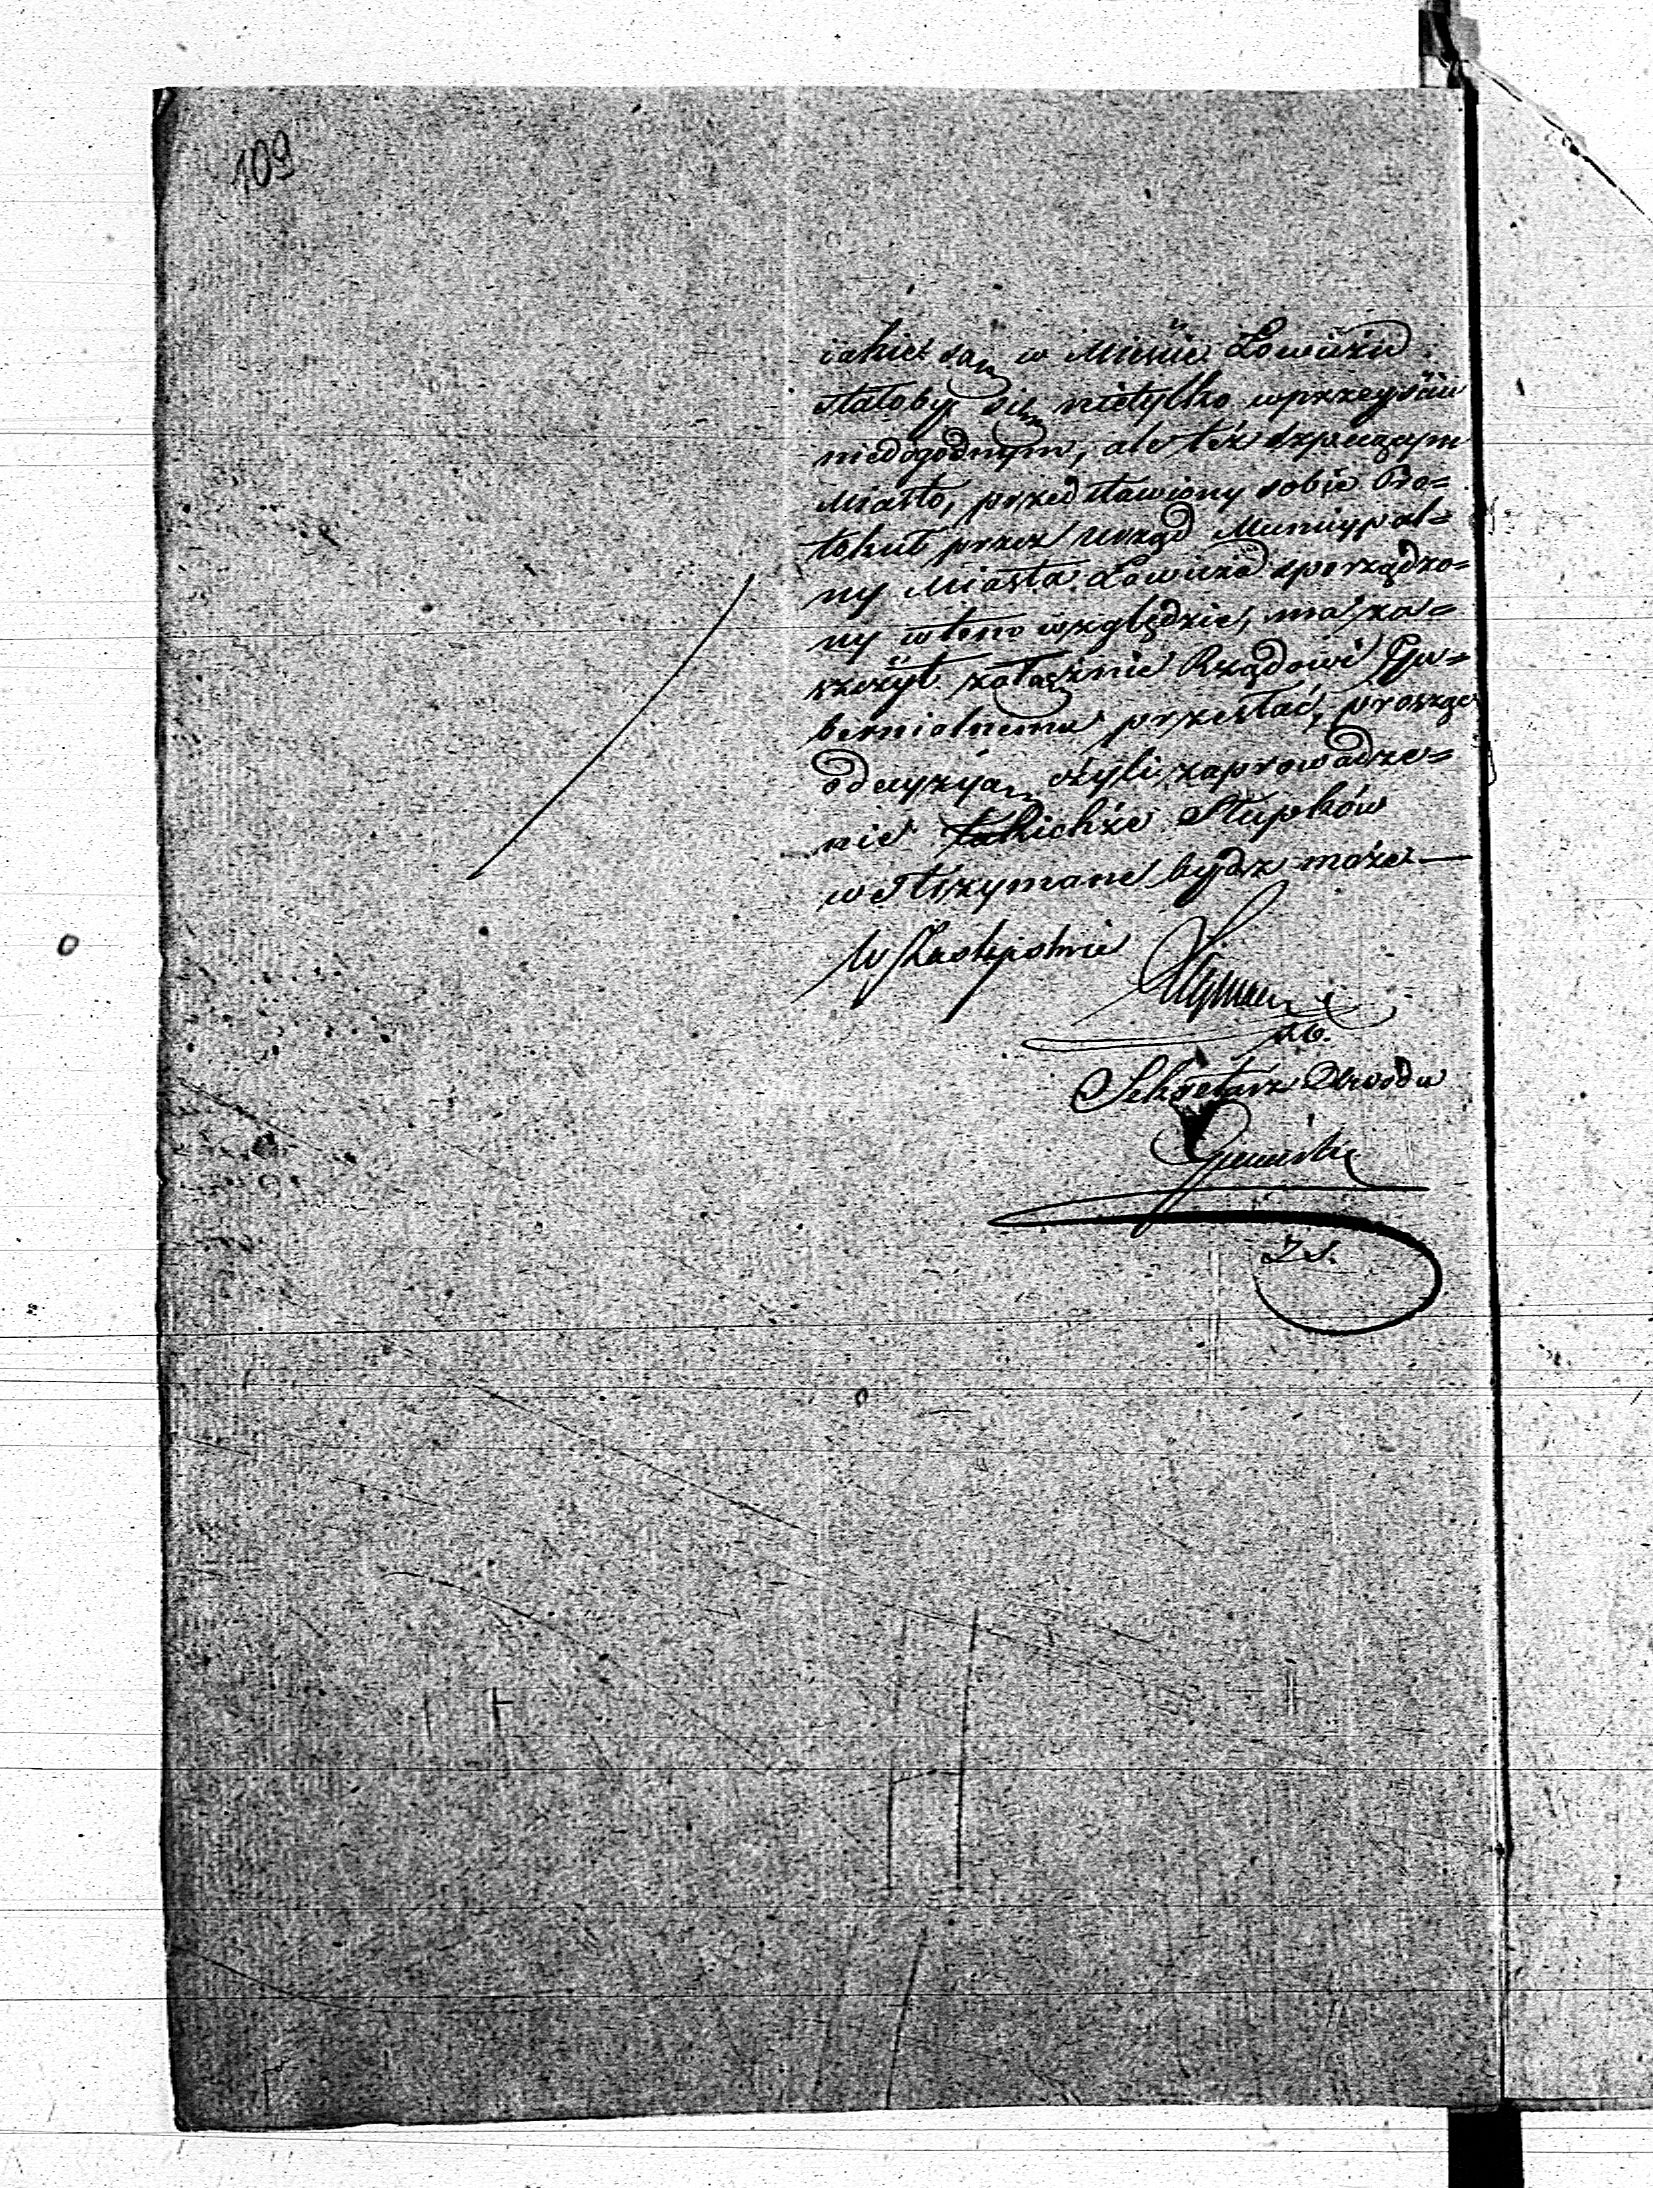 109
iakie są w Mieście Łowiczu
stałoby się nietylko wprzeyściu
niedogodnym, ale też szpecącym
Miasto, przedstawiony sobie Pro=
tokuł przez Urząd Municypal=
ny Miasta Łowicza sporządzo=
ny w tem względzie, ma za=
szczyt załącznie Rządowi Gu=
bernialnemu przesłać, prosząc
o decyzyą czyli zaprowadze=
nie takichże Słupków
wstrzymane bydz może —
W Zastępstwie
Sekretarz Obwodu
Z.S.